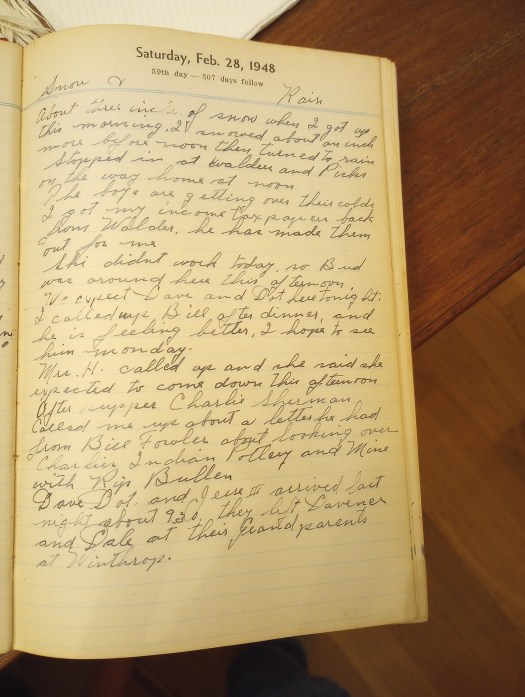 Saturday, Feb. 28, 1948
59th day — 307 days follow
Snow & Rain
About three inches of snow when I got up
this morning. It snowed about an inch
more before noon then turned to rain
Stopped in at Walders and Picks
on the way home at noon
The boys are getting over their colds
I got my income tax papers back
from Walder, he has made them
out for me
Ski didnt work today, so Bud
was around here this afternoon.
We expect Dave and Dot here tonight.
I called up Bill after dinner, and
he is feeling better, I hope to see
him monday.
Mrs. H. called up and she said she
expected to come down this afternoon
After supper Charlie Sherman
called me up about a letter he had
from Bill Fowler about looking over
Charlies Indian Pottery and Mine
with Rip Bullen
Dave Dot. and Jesse III arrived last
night about 930, they left Lavener
and Dale at their Grandparents
at Winthrop.